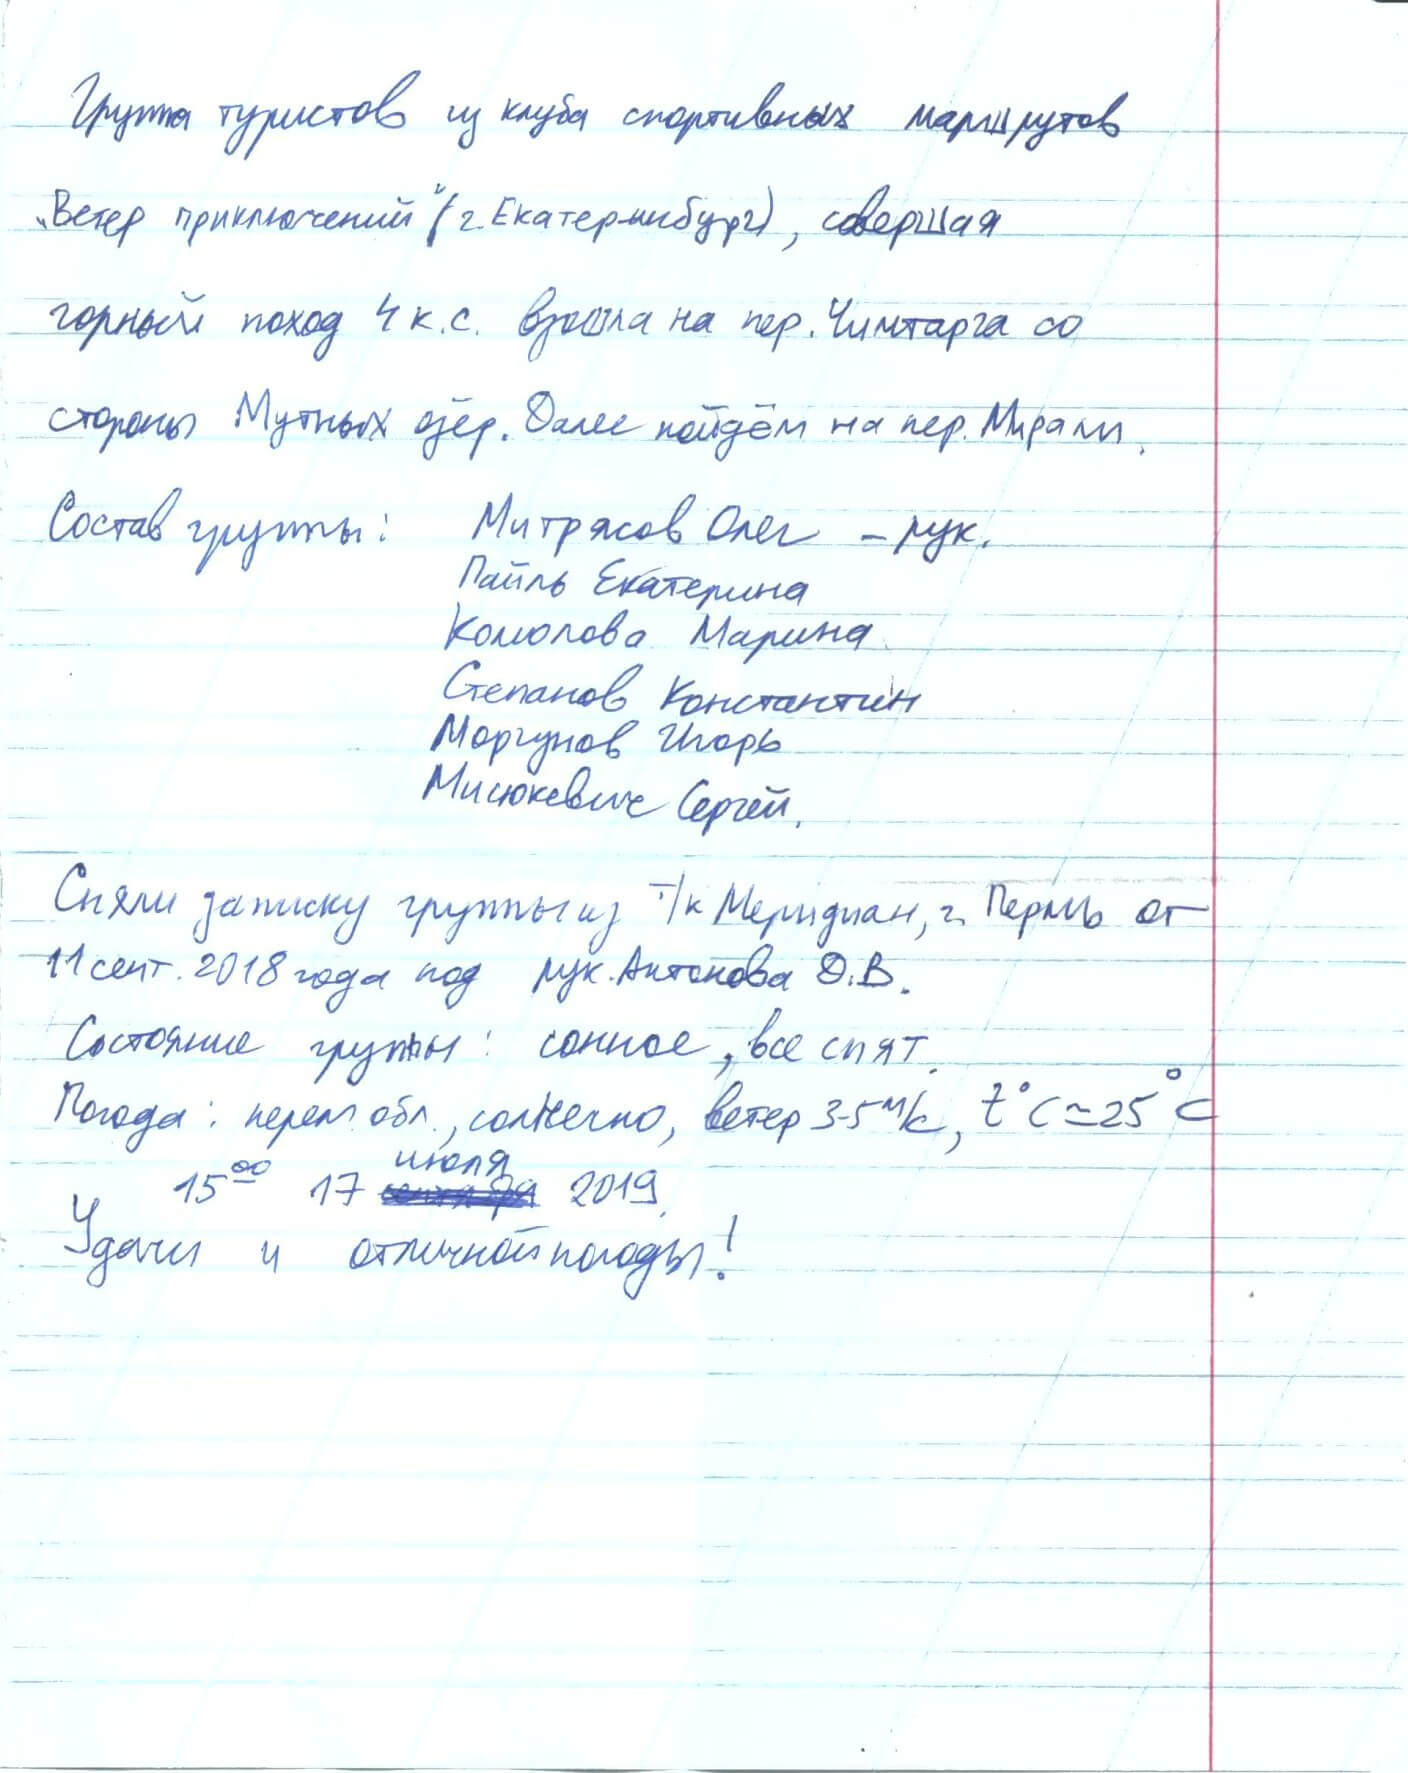 Группа туристов из клуба спортивных маршрутов
„Ветер приключений" (г. Екатеринбург), совершая
горный поход 4 к.с. взошла на пер. Чимтарга со
стороны Мутных озёр. Далее пойдём на пер. Мирали.
Состав группы: Митрясов Олег – рук.
Пайль Екатерина
Комолова Марина
Степанов Константин
Моргунов Игорь
Мисюкевич Сергей.
Сняли записку группы из т/к Меридиан, г. Пермь от
11 сент. 2018 года под рук. Антонова Д.В.
Состояние группы: сонное, все спят.
Погода: перем обл., солнечно, ветер 3-5 м/с, t°C ≃ 25°C
15⁰⁰ 17 июля 2019.
Удачи и отличной погоды!